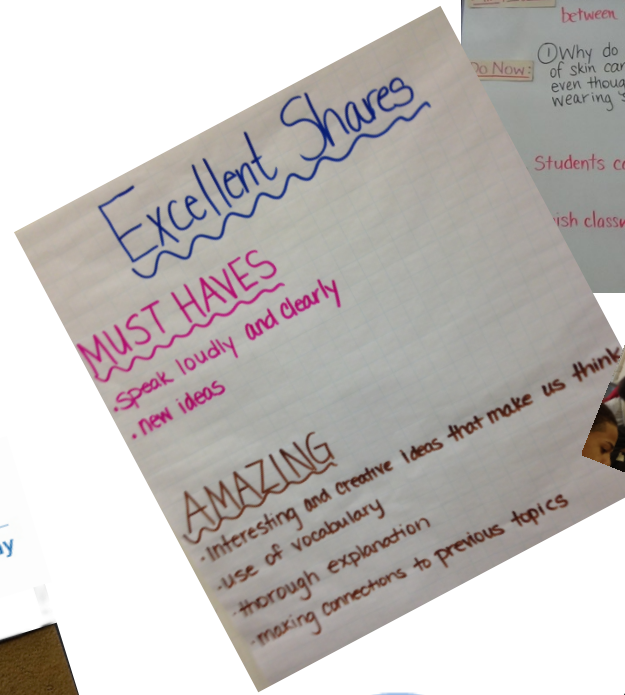 Excellent Shares
MUST HAVES
·speak loudly and clearly
·new ideas
AMAZING
·Interesting and creative ideas that make us think
·use of vocabulary
·thorough explanation
·making connections to previous topics
between
Do Now:
①Why do
of skin can
even thoug
wearing
Students c
ish classr
ay